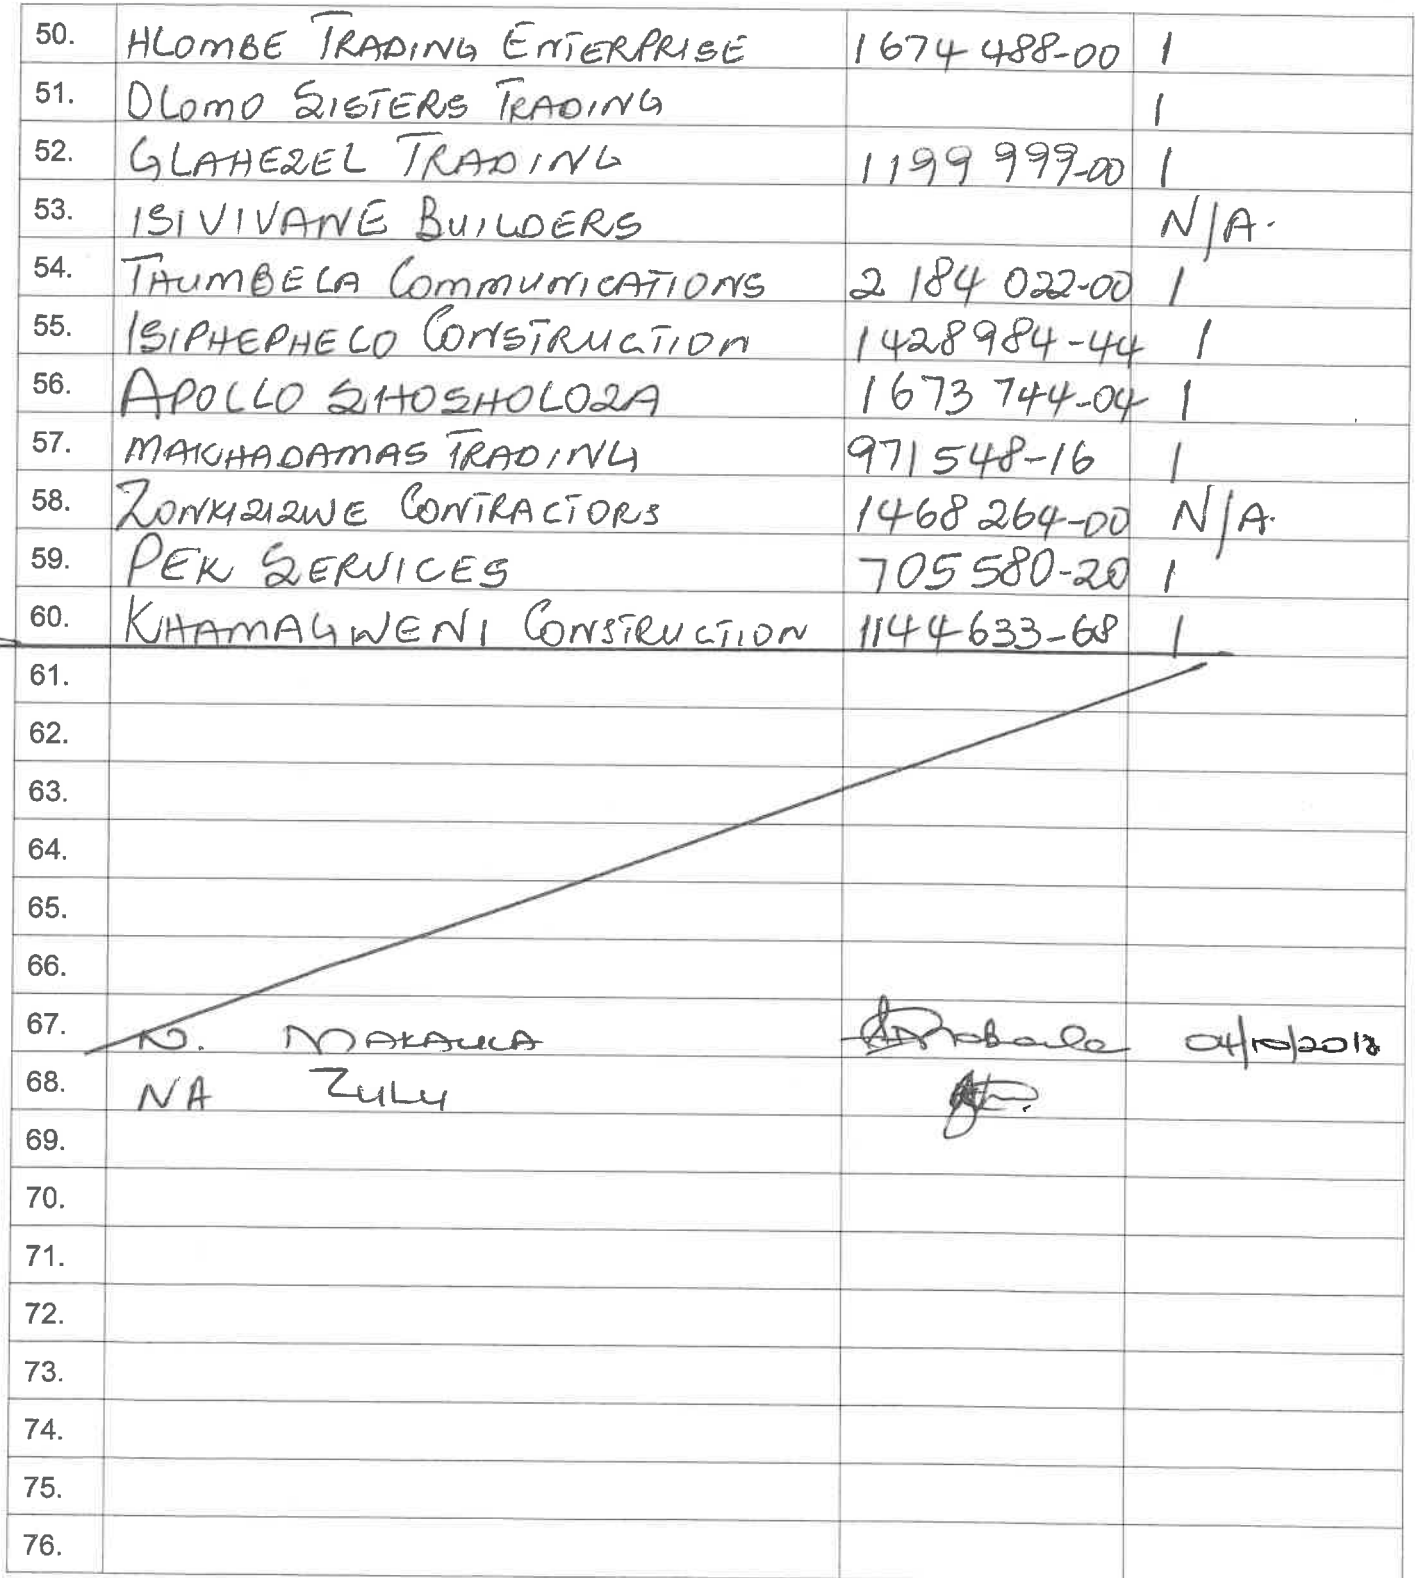 50. HLOMBE TRADING ENTERPRISE 1674 488-00 1
51. DLOMO SISTERS TRADING 1
52. GLAHEZEL TRADING 1199 999-00 1
53. ISIVIVANE BUILDERS N/A.
54. THUMBELA COMMUNICATIONS 2 184 022-00 1
55. ISIPHEPHELO CONSTRUCTION 1428984-44 1
56. APOLLO SHOSHOLOZA 1673 744-04 1
57. MAKHADAMAS TRADING 971548-16 1
58. ZONKIZIZWE CONTRACTORS 1468 264-00 N/A.
59. PEK SERVICES 705 580-20 1
60. KHAMAGWENI CONSTRUCTION 1144633-68 1
61.
62.
63.
64.
65.
66.
67. N. 04/10/2018
68. NA ZULU
69.
70.
71.
72.
73.
74.
75.
76.